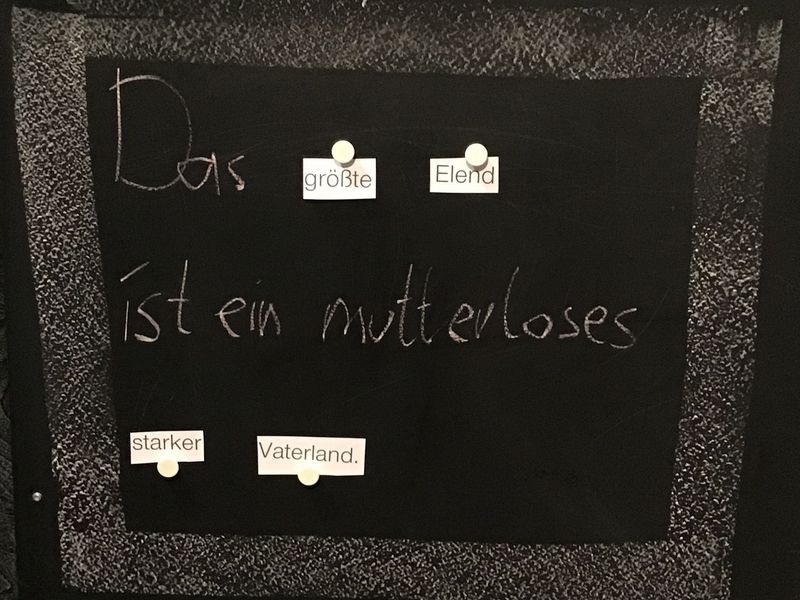 Das größte Elend
ist ein mutterloses
starker Vaterland.